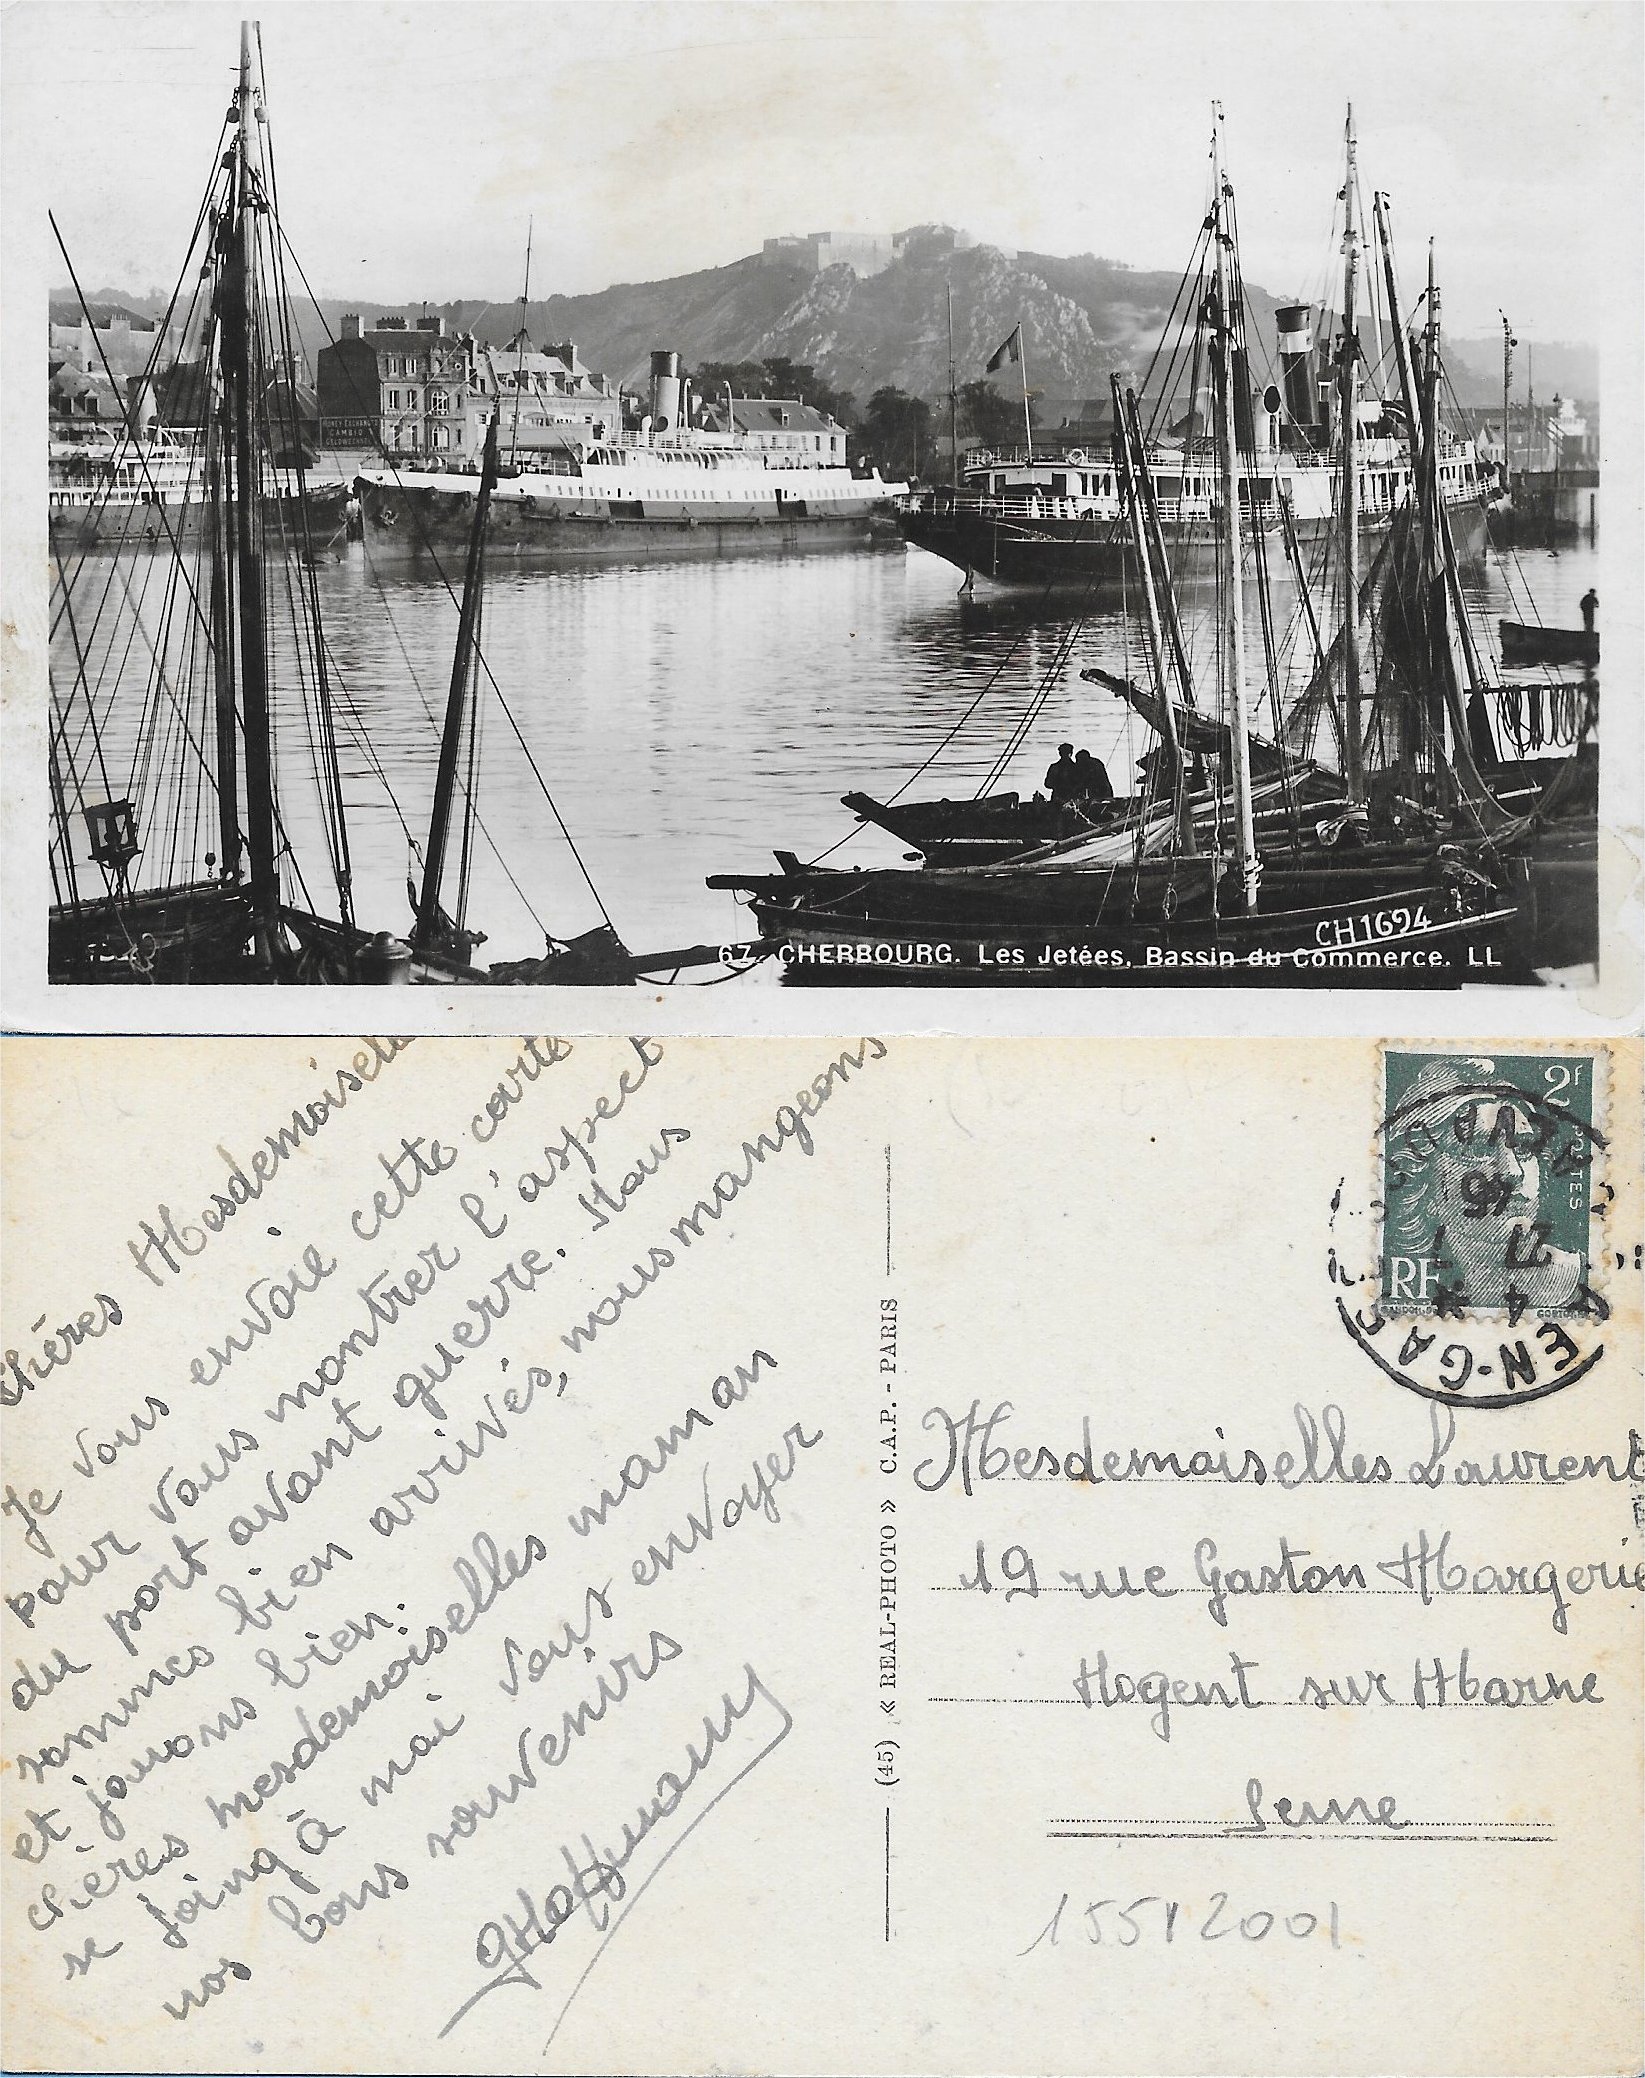 MONEY EXCHANGE
CAMBIO
GELDWECHSEL
CH1694
67. CHERBOURG. Les Jetées, Bassin du Commerce. LL
Chères Mesdemoiselles
Je vous envoie cette carte
pour vous montrer l'aspect
du port avant guerre. Nous
sommes bien arrivés, nous mangeons
et jouons bien.
chères mesdemoiselles maman
se joing à moi vous envoyer
nos bons souvenirs
GHoffmann
(45) « REAL-PHOTO » C.A.P. - PARIS
2f
POSTES
RF
GANDON
EN-GA
4
27 7
45
Mesdemoiselles Laurent
19 rue Gaston Margerie
Nogent sur Marne
Seine
15512001